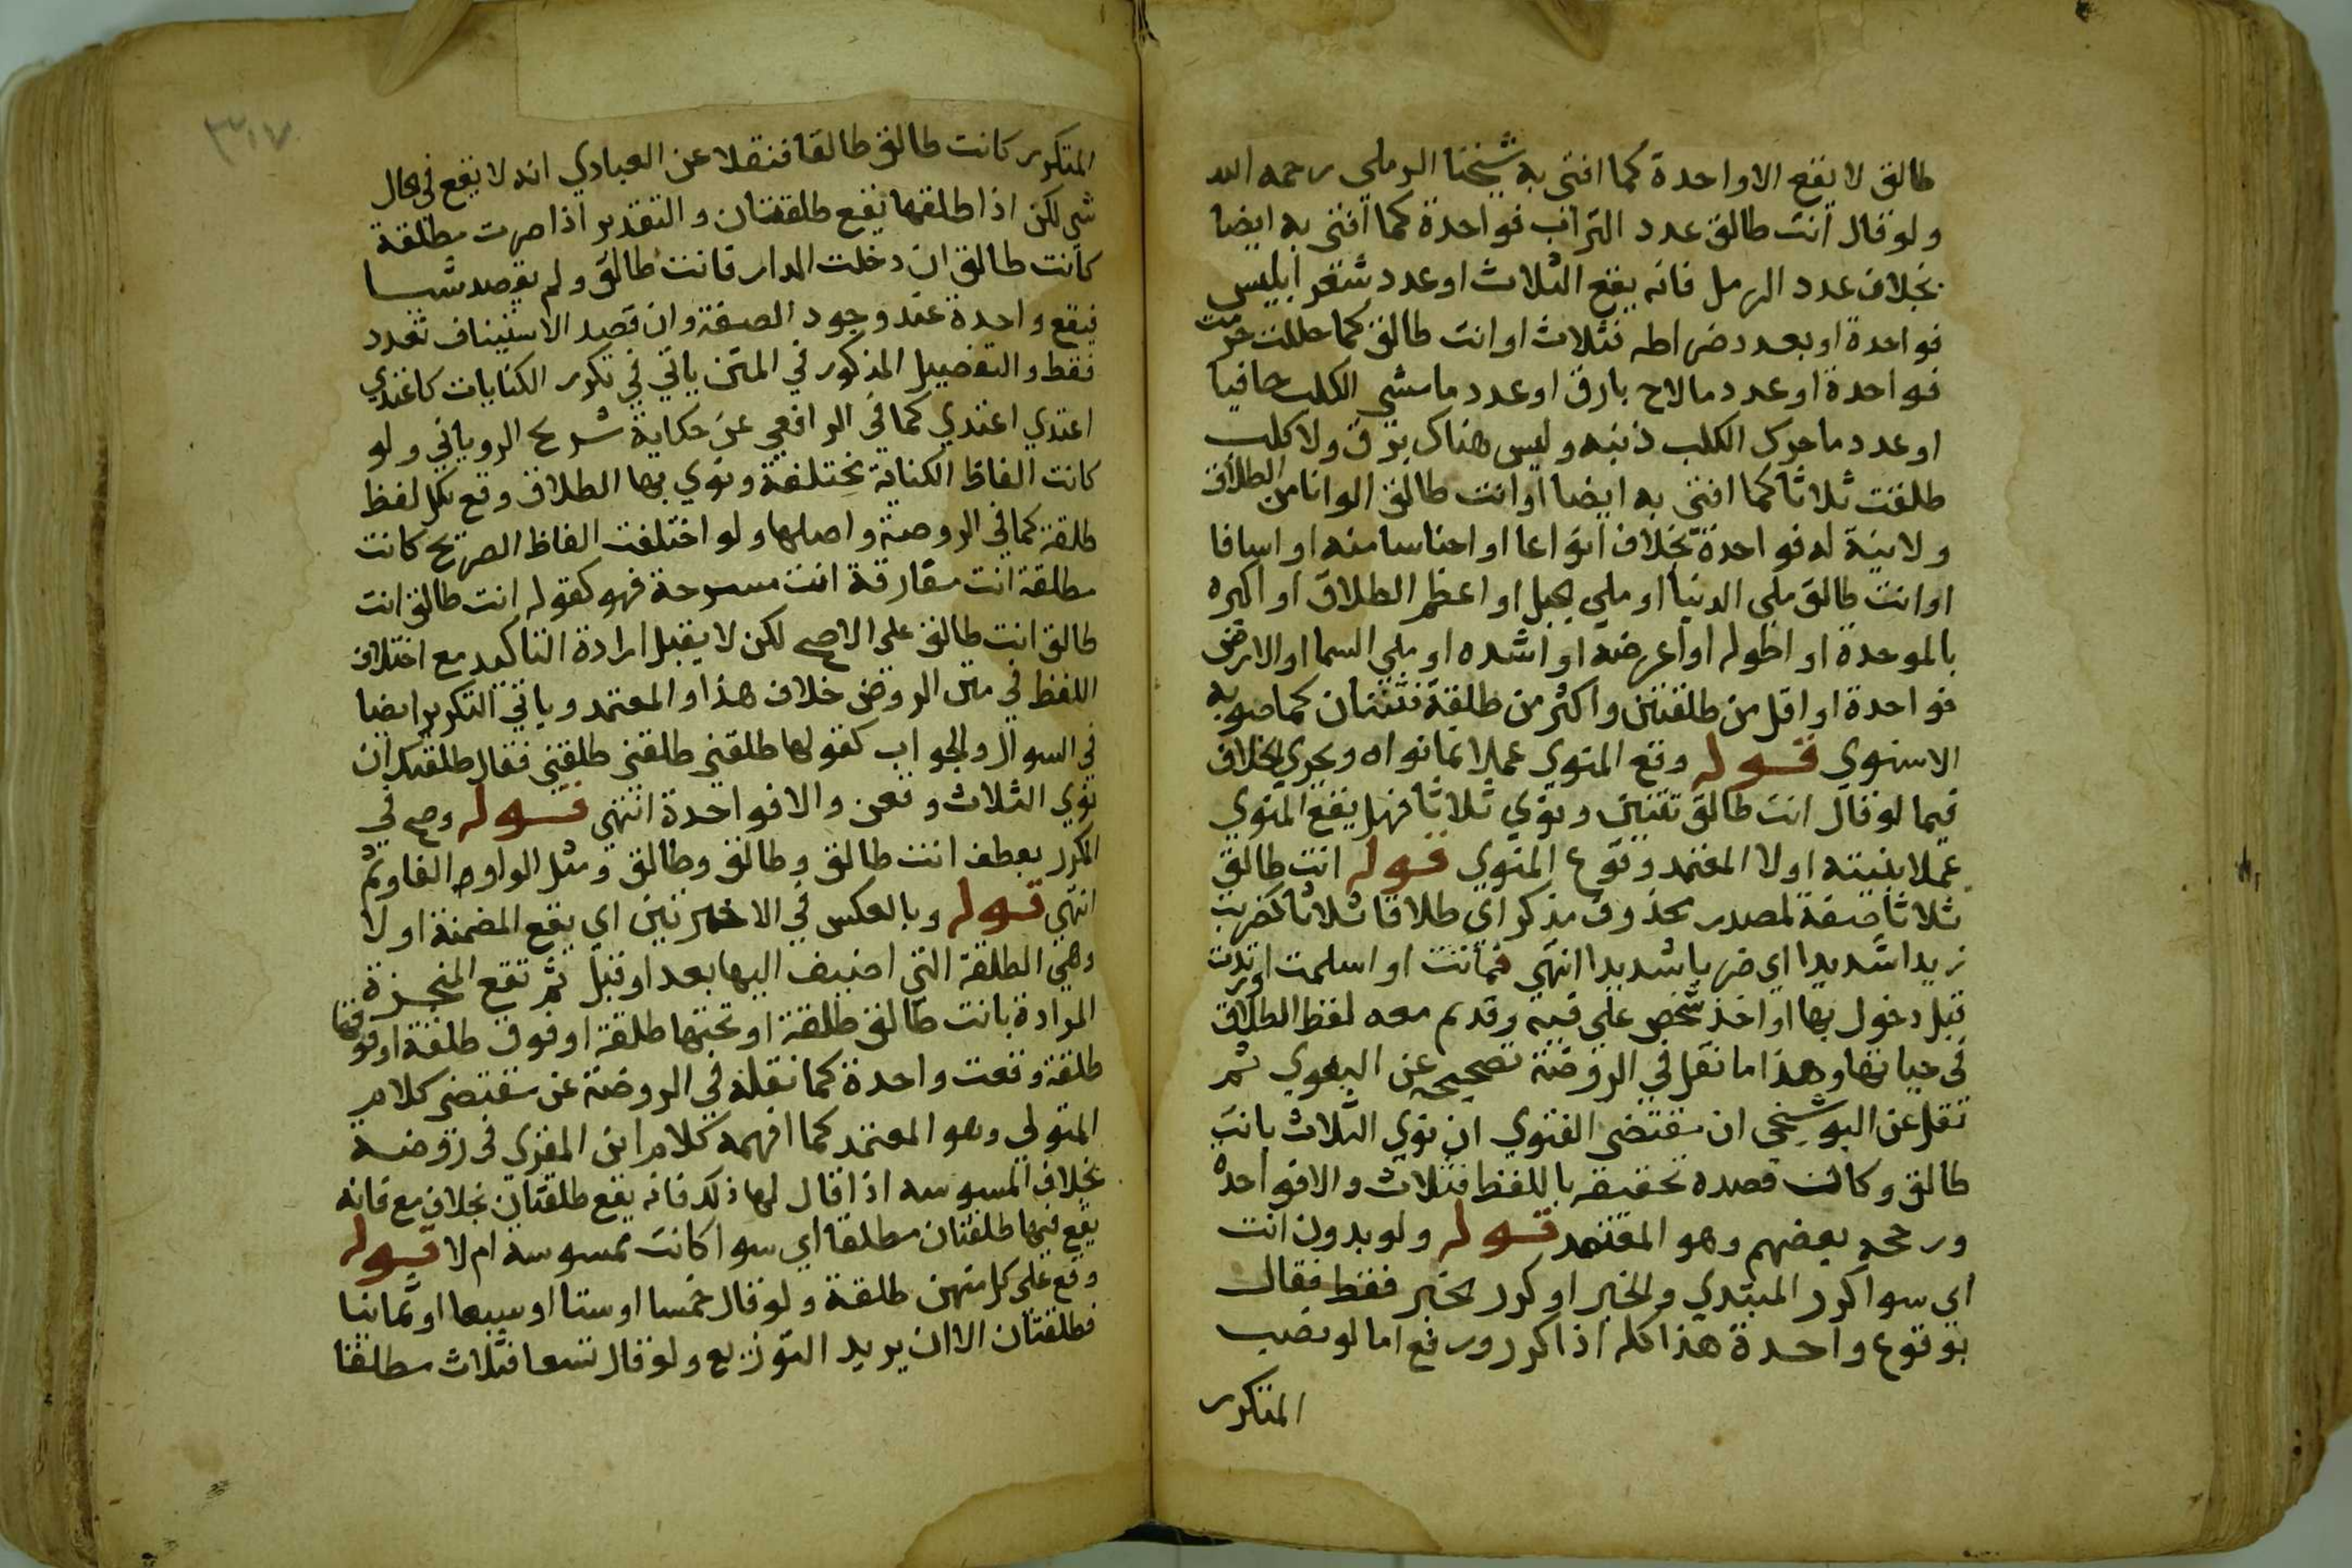 طالق لا يقع الا واحدة كما افتى به شيخنا الرملي رحمه الله
ولو قال انت طالق عدد التراب فواحدة كما افتى به ايضا
بخلاف عدد الرمل فانه يقع الثلاث او عدد شعر ابليس
فواحدة او بعدد ضراطه فثلاث او انت طالق كما حللت حرمت
فواحدة او عدد ما لاح بارق او عدد ما مشي الكلب حافيا
او عدد ما حرك الكلب ذنبه وليس هناك برق ولا كلب
طلقت ثلاثا كما افتى به ايضا او انت طالق الوانا من الطلاق
ولا نية له فواحدة بخلاف انواعا او اجناسا منه او اصنافا
او انت طالق ملي الدنيا او ملي الجبل او اعظم الطلاق او اكبره
بالموحدة او اطوله او اعرضه او اشده او ملي السما او الارض
فواحدة او اقل من طلقتين واكثر من طلقة فثنتان كما صوبه
الاسنوي قوله وقع المنوي عملا بما نواه ويجري الخلاف
فيما لو قال انت طالق ثنتين ونوي ثلاثا فهل يقع المنوي
عملا بنيته اولا المعتمد وقوع المنوي قوله انت طالق
ثلاثا صفة لمصدر محذوف مذكر اي طلاقا ثلاثا كضربت
زيدا شديدا اي ضربا شديدا انتهى فماتت او اسلمت او ارتدت
قبل دخول بها او اخذ شخص على فيه وقد تم معه لفظ الطلاق
في حياتها وهذا ما نقل في الروضة تصحيحه عن البغوي ثم
نقل عن البوشنجي ان مقتضى الفتوي ان نوي الثلاث بانت
طالق وكانت قصده تحقيقه باللفظ فثلاث والا فواحدة
ورجحه بعضهم وهو المعتمد قوله ولو بدون انت
اي سوا كرر المبتدي والخبر او كرر الخبر فقط فقال
بوقوع واحدة هذا كله اذا كرر ورفع اما لو نصب
المتكرر
٣١٧
المتكرر كانت طالق طالقا فنقلا عن العبادي انه لا يقع في الحال
شي لكن اذا طلقها تقع طلقتان والتقدير اذا صرت مطلقة
كانت طالق ان دخلت الدار فانت طالق ولم يقصد شيا
فيقع واحدة عند وجود الصفة وان قصد الاستيناف تعدد
فقط والتفصيل المذكور في المتن ياتي في تكرر الكنايات كاعتدي
اعتدي اعتدي كما في الرافعي عن حكاية شريح الروياني ولو
كانت الفاظ الكناية مختلفة ونوي بها الطلاق وقع بكل لفظ
طلقة كما في الروضة واصلها ولو اختلفت الفاظ الصريح كانت
مطلقة انت مفارقة انت مسرحة فهو كقوله انت طالق انت
طالق انت طالق على الاصح لكن لا يقبل ارادة التاكيد مع اختلاف
اللفظ في متن الروض خلاف هذا والمعتمد وياتي التكرير ايضا
في السوال والجواب كقولها طلقني طلقني طلقني فقال طلقتك ان
نوي الثلاث وقعن والا فواحدة انتهى قوله وصح في
المكرر بعطف انت طالق وطالق وطالق ومثل الواو الفا وثم
انتهى قوله وبالعكس في الاخيرتين اي يقع المضمنة اولا
وهي الطلقة التي اضيف اليها بعد او قبل ثم تقع المنجزة
المرادة بانت طالق طلقة او تحتها طلقة او فوق طلقة او فوقها
طلقة وقعت واحدة كما نقله في الروضة عن مقتضى كلام
المتولي وهو المعتمد كما افهمه كلام ابن المقري في روضه
بخلاف الممسوسه اذا قال لها ذلك فانه يقع طلقتان بخلاف مع فانه
يقع فيها طلقتان مطلقا اي سوا كانت ممسوسة ام لا قوله
وقع على كل منهن طلقة ولو قال خمسا او ستا او سبعا او ثمانيا
فطلقتان الا ان يريد التوزيع ولو قال تسعا فثلاث مطلقا